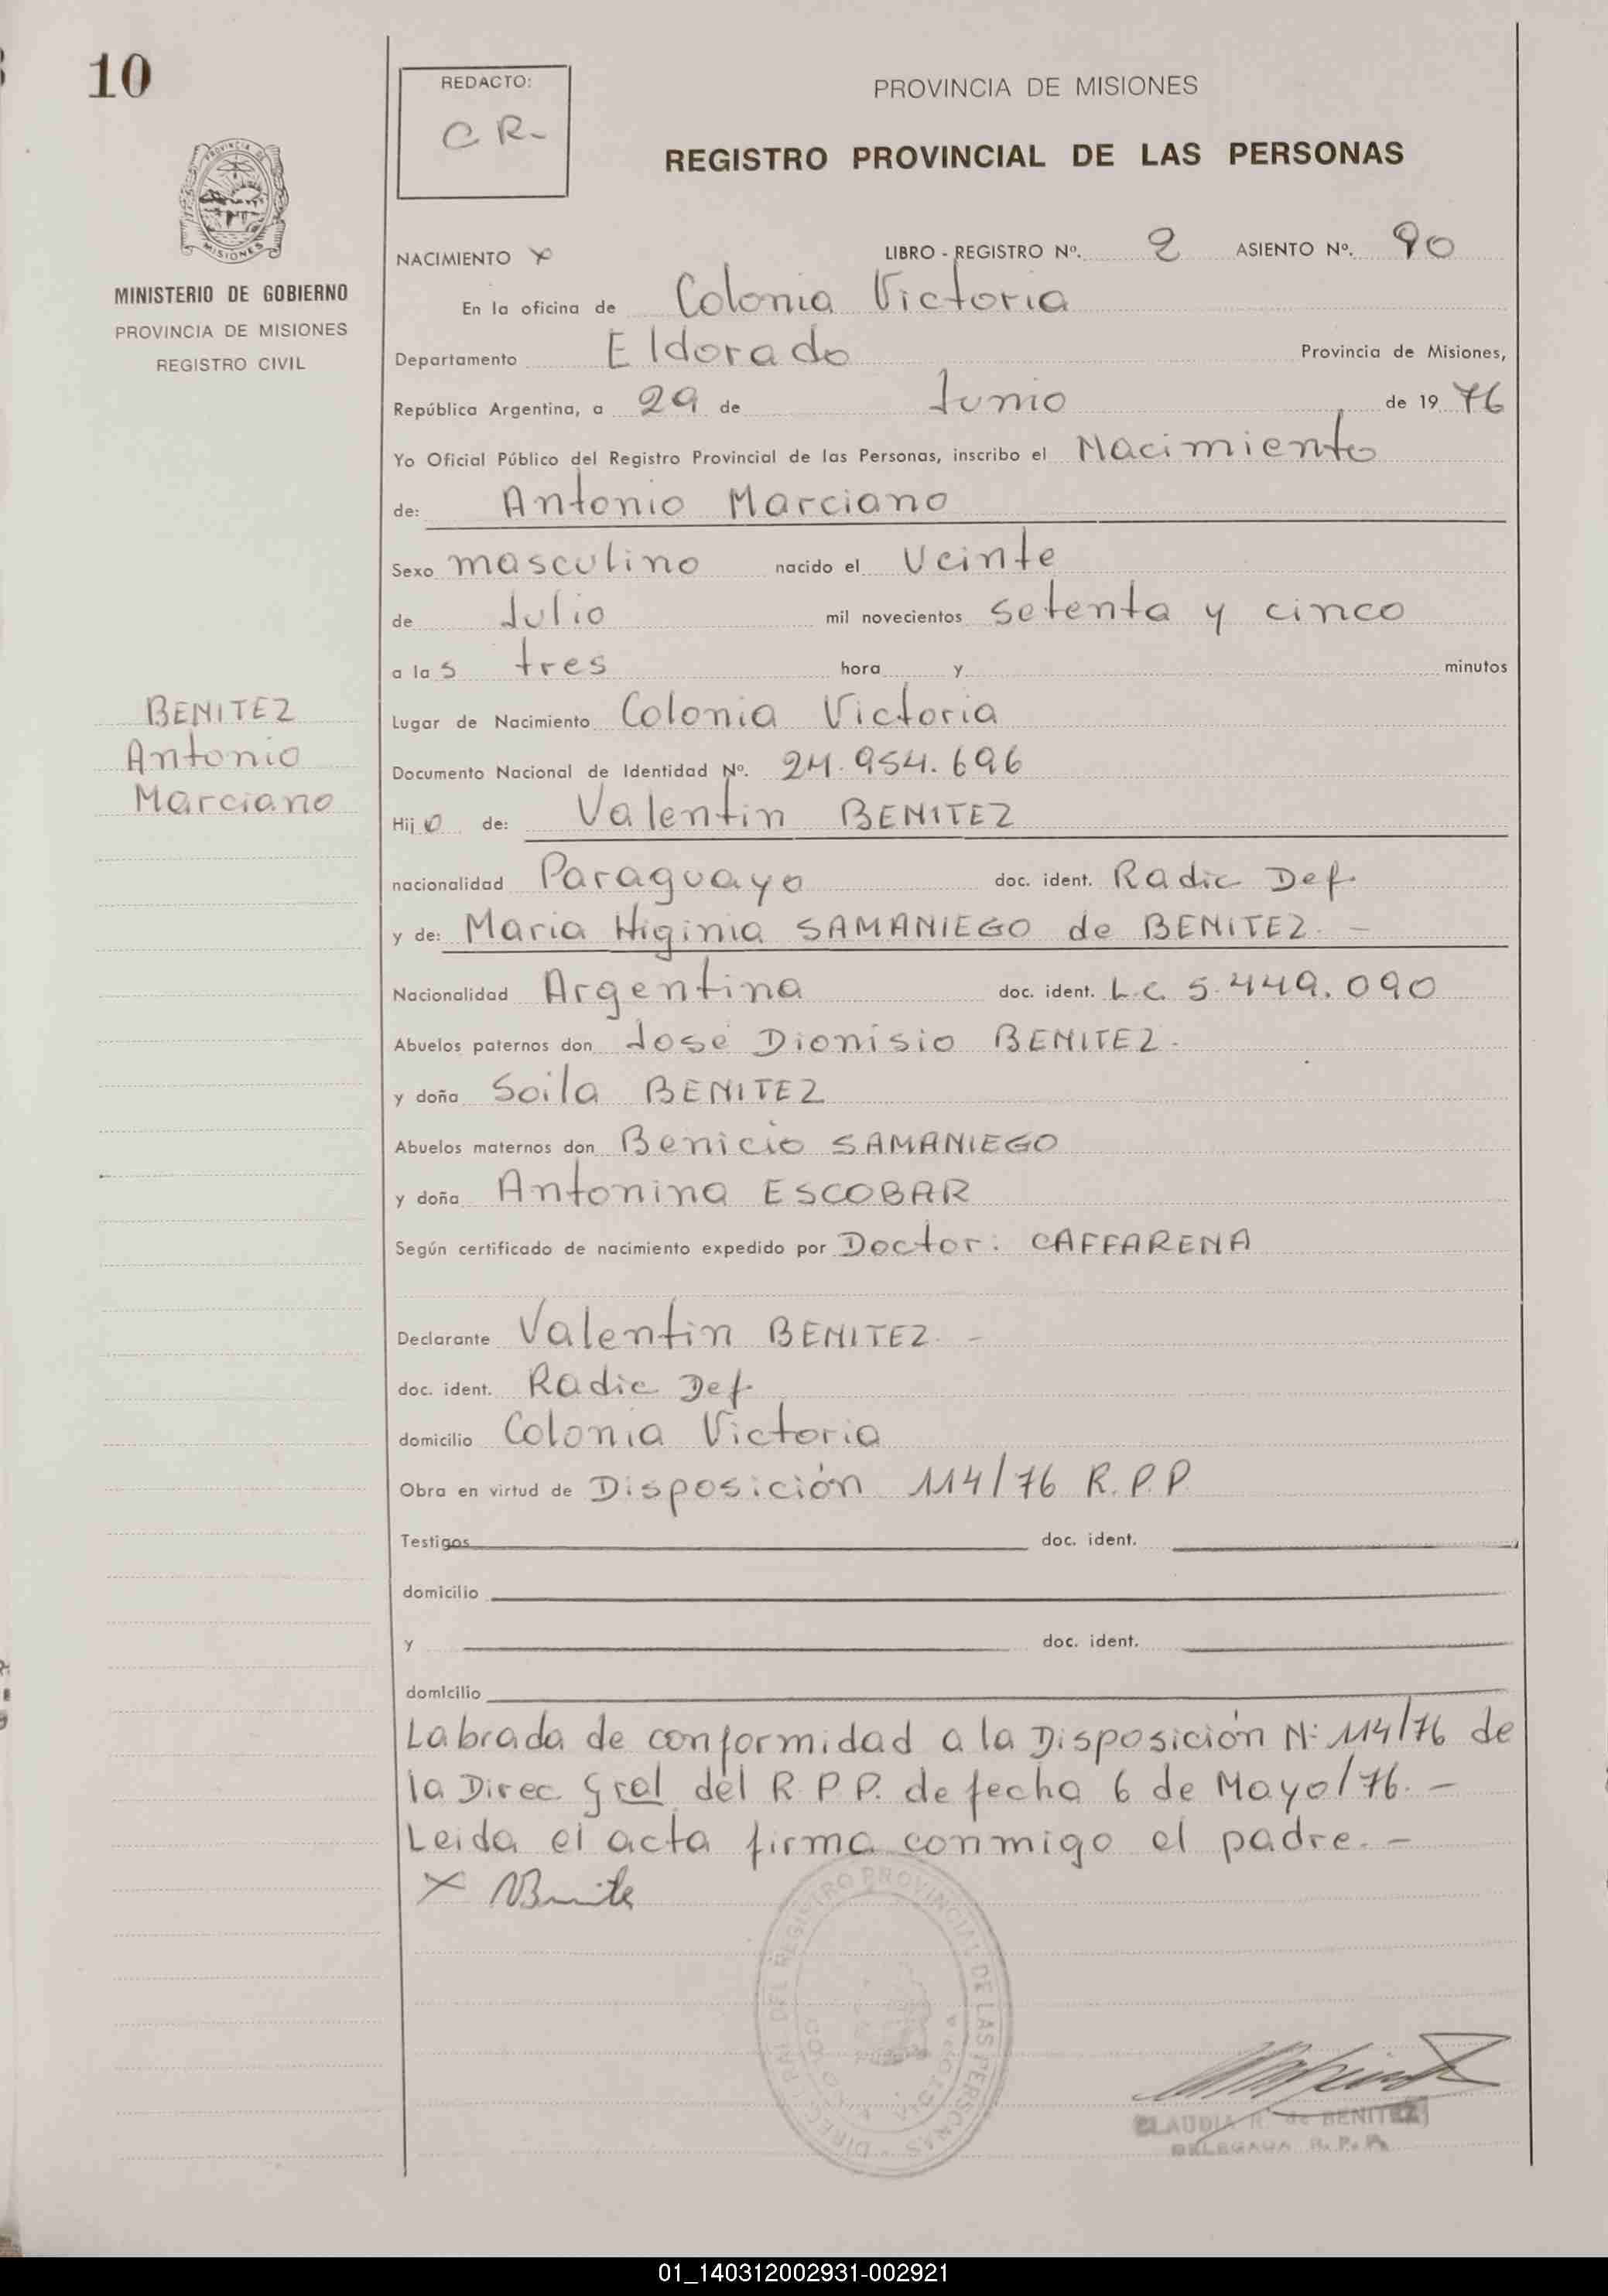 10
REDACTO:
C R-
PROVINCIA DE MISIONES
REGISTRO PROVINCIAL DE LAS PERSONAS
PROVINCIA DE MISIONES
MINISTERIO DE GOBIERNO
PROVINCIA DE MISIONES
REGISTRO CIVIL
NACIMIENTO X LIBRO - REGISTRO Nº. 2 ASIENTO Nº. 90
En la oficina de Colonia Victoria
Departamento Eldorado Provincia de Misiones,
República Argentina, a 29 de Junio de 19 76
Yo Oficial Público del Registro Provincial de las Personas, inscribo el Nacimiento
de: Antonio Marciano
Sexo masculino nacido el Veinte
de Julio mil novecientos setenta y cinco
a las tres hora y minutos
BENITEZ
Antonio
Marciano
Lugar de Nacimiento Colonia Victoria
Documento Nacional de Identidad Nº. 24.954.696
Hijo de: Valentin BENITEZ
nacionalidad Paraguayo doc. ident. Radic Def.
y de: Maria Higinia SAMANIEGO de BENITEZ. -
Nacionalidad Argentina doc. ident. L.C. 5.449.090
Abuelos paternos don José Dionisio BENITEZ.
y doña Soila BENITEZ
Abuelos maternos don Benicio SAMANIEGO
y doña Antonina ESCOBAR
Según certificado de nacimiento expedido por Doctor: CAFFARENA
Declarante Valentin BENITEZ. -
doc. ident. Radic Def.
domicilio Colonia Victoria
Obra en virtud de Disposición 114/76 R.P.P.
Testigos doc. ident.
domicilio
y doc. ident.
domicilio
Labrada de conformidad a la Disposición N: 114/76 de
la Direc. Gral del R.P.P. de fecha 6 de Mayo/76. -
Leida el acta firma conmigo el padre. -
X
REGISTRO PROVINCIAL DE LAS PERSONAS
CLAUDIA R. de BENITEZ
DELEGADA R.P.P.
01_140312002931-002921